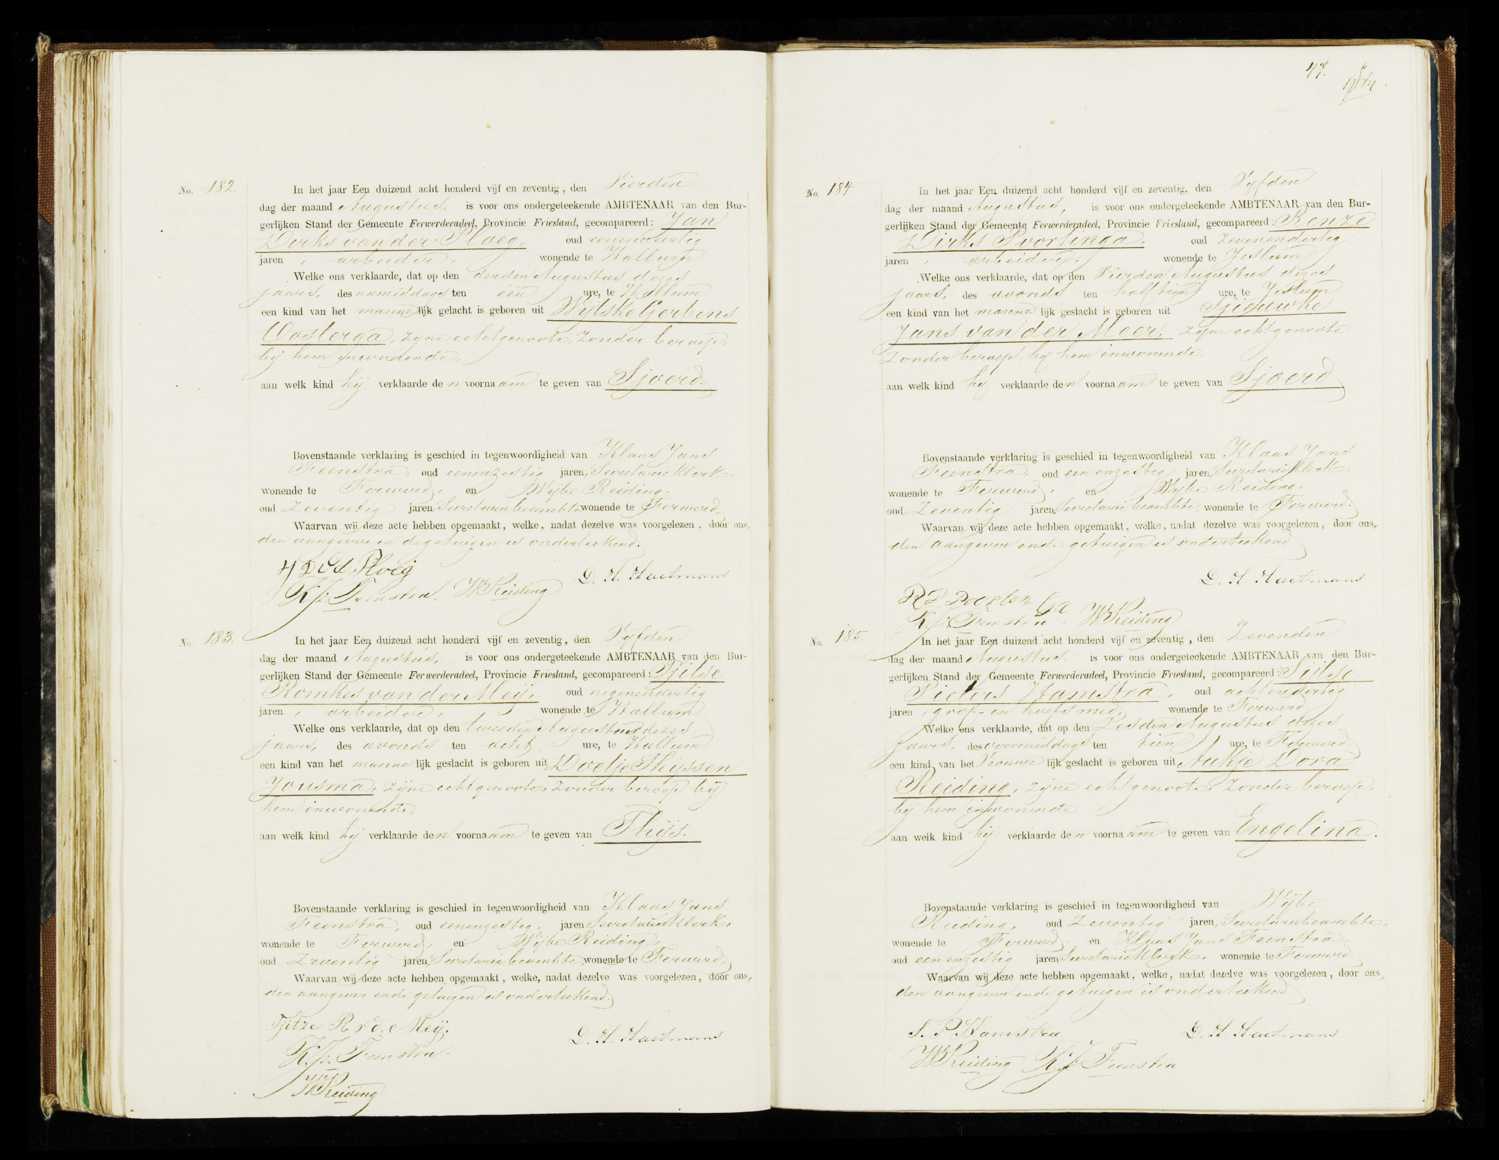 No. 182
In het jaar Een duizend acht honderd vijf en zeventig, den Vierden
dag der maand Augustus, is voor ons ondergeteekende AMBTENAAR van den Bur-
gerlijken Stand der Gemeente Ferwerderadeel, Provincie Friesland, gecompareerd: Jan
Dirks van der Ploeg oud eenendertig
jaren, arbeider, wonende te Hallum
Welke ons verklaarde, dat op den derden Augustus dezes
jaars, des namiddags ten een ure, te Hallum
een kind van het mannelijk gelacht is geboren uit Wytske Gerbens
Oosterga, zyne echtgenoote, zonder beroep
by hem inwonende
aan welk kind hij verklaarde den voornaam te geven van Sjoerd.
Bovenstaande verklaring is geschied in tegenwoordigheid van Klaas Jans
Feenstra, oud eenenzestig jaren, Secretarie klerk
wonende te Ferwerd, en Wijbe Reiding,
oud Zeventig jaren, Secretarie beambte wonende te Ferwerd
Waarvan wij deze acte hebben opgemaakt, welke, nadat dezelve was voorgelezen, door ons,
den aangever en de getuigen is onderteekend.
J D vd Ploeg
K. J. Feenstra W Reiding D. H. Haetmans
No. 183.
In het jaar Een duizend acht honderd vijf en zeventig, den Vyfden
dag der maand Augustus, is voor ons ondergeteekende AMBTENAAR van den Bur-
gerlijken Stand der Gemeente Ferwerderadeel, Provincie Friesland, gecompareerd: Tjitse
Romkes van der Meij, oud negenendertig
jaren, arbeider, wonende te Hallum
Welke ons verklaarde, dat op den tweeden Augustus dezes
jaars, des avonds ten acht ure, te Hallum
een kind van het mannelijk geslacht is geboren uit Doetje Thyssen
Yousma, zijne echtgenoote, zonder beroep by
hem inwonende
aan welk kind hij verklaarde den voornaam te geven van Thijs.
Bovenstaande verklaring is geschied in tegenwoordigheid van Klaas Jans
Feenstra, oud eenenzestig jaren Secretarie klerk,
wonende te Ferwerd, en Wijbe Reiding,
oud Zeventig jaren, Secretarie beambte wonende te Ferwerd,
Waarvan wij deze acte hebben opgemaakt, welke, nadat dezelve was voorgelezen, door ons,
den aangever en de getuigen is onderteekend.
Tjitze R v d Meij.
K. J. Feenstra D. H. Haetmans
W Reiding
47.
No. 184
In het jaar Een duizend acht honderd vijf en zeventig, den Vyfden
dag der maand Augustus, is voor ons ondergeteekende AMBTENAAR van den Bur-
gerlijken Stand der Gemeente Ferwerderadeel, Provincie Friesland, gecompareerd: Renze
Dirks Poortinga oud Zevenendertig
jaren, arbeider, wonende te Jeslum
Welke ons verklaarde, dat op den Vierden Augustus dezes
jaars, des avonds ten half tien ure, te Jeslum
een kind van het mannelijk geslacht is geboren uit Sjieuwke
Jans van der Meer, zijne echtgenoote
Zonder beroep, by hem inwonende
aan welk kind hij verklaarde den voornaam te geven van Sjoerd
Bovenstaande verklaring is geschied in tegenwoordigheid van Klaas Jans
Feenstra, oud een en zestig jaren, Secretarie Klerk
wonende te Ferwerd, en Wijbe Reiding,
oud Zeventig jaren, Secretarie beambte, wonende te Ferwerd.
Waarvan wij deze acte hebben opgemaakt, welke, nadat dezelve was voorgelezen, door ons,
den aangever en de getuigen is onderteekend
D. H. Haetmans
K. J. Feenstra W Reiding
No. 185
In het jaar Een duizend acht honderd vijf en zeventig, den Zevenden
dag der maand Augustus is voor ons ondergeteekende AMBTENAAR van den Bur-
gerlijken Stand der Gemeente Ferwerderadeel, Provincie Friesland, gecompareerd:
Pieters Hamstra, oud achtendertig
jaren, grof en hoefsmid, wonende te Ferwerd
Welke ons verklaarde, dat op den Zesden Augustus dezes
jaars, des voormiddags ten tien ure, te Ferwerd
een kind van het Vrouwelijk geslacht is geboren uit Aukje Dora
Reiding, zijne echtgenoote, zonder beroep
by hem inwonende
aan welk kind hij verklaarde den voornaam te geven van Engelina.
Bovenstaande verklaring is geschied in tegenwoordigheid van Wijbe
Reiding, oud Zeventig jaren, Secretarie beambte,
wonende te Ferwerd en Klaas Jans Feenstra
oud een en zestig jaren Secretarie klerk, wonende te Ferwerd
Waarvan wij deze acte hebben opgemaakt, welke, nadat dezelve was voorgelezen, door ons,
den aangever en de getuigen is onderteekend
S. P. Hamstra D. H. Haetmans
W Reiding K. J. Feenstra